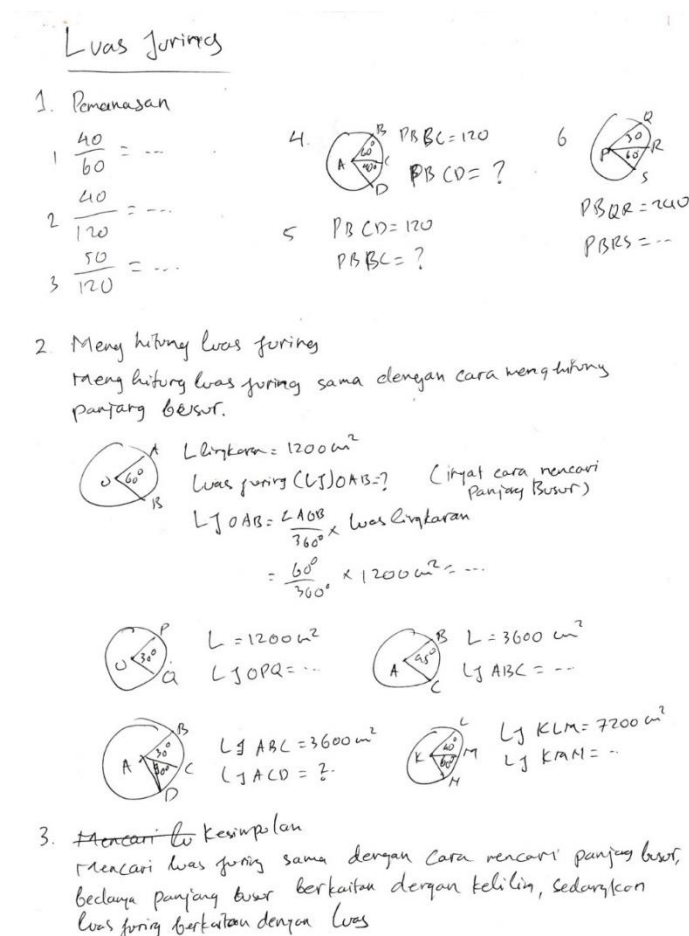 Luas Juring
1. Pemanasan
1 40/60 = ...
2 40/120 = ...
3 50/120 = ...
4. B 60° A C 40° D PB BC = 120
PB CD = ?
5 PB CD = 120
PB BC = ?
6 Q 30 P R 60 S
PB QR = 240
PB RS = ...
2. Menghitung luas juring
Menghitung luas juring sama dengan cara menghitung
panjang busur.
A O 60° B L lingkaran = 1200 cm²
Luas juring (LJ) OAB = ? (ingat cara mencari
panjang Busur)
LJ OAB = ∠AOB/360° × luas lingkaran
= 60°/360° × 1200 cm² = ...
P O 30° Q L = 1200 cm²
LJ OPQ = ...
B A 45° C L = 3600 cm²
LJ ABC = ...
B A 30° C D LJ ABC = 3600 cm²
LJ ACD = ?
L K M 60° N LJ KLM = 7200 cm²
LJ KMN = ..
3. Mencari lu Kesimpulan
Mencari luas juring sama dengan cara mencari panjang busur,
bedanya panjang busur berkaitan dengan kelilin, sedangkan
luas juring berkaitan dengan luas